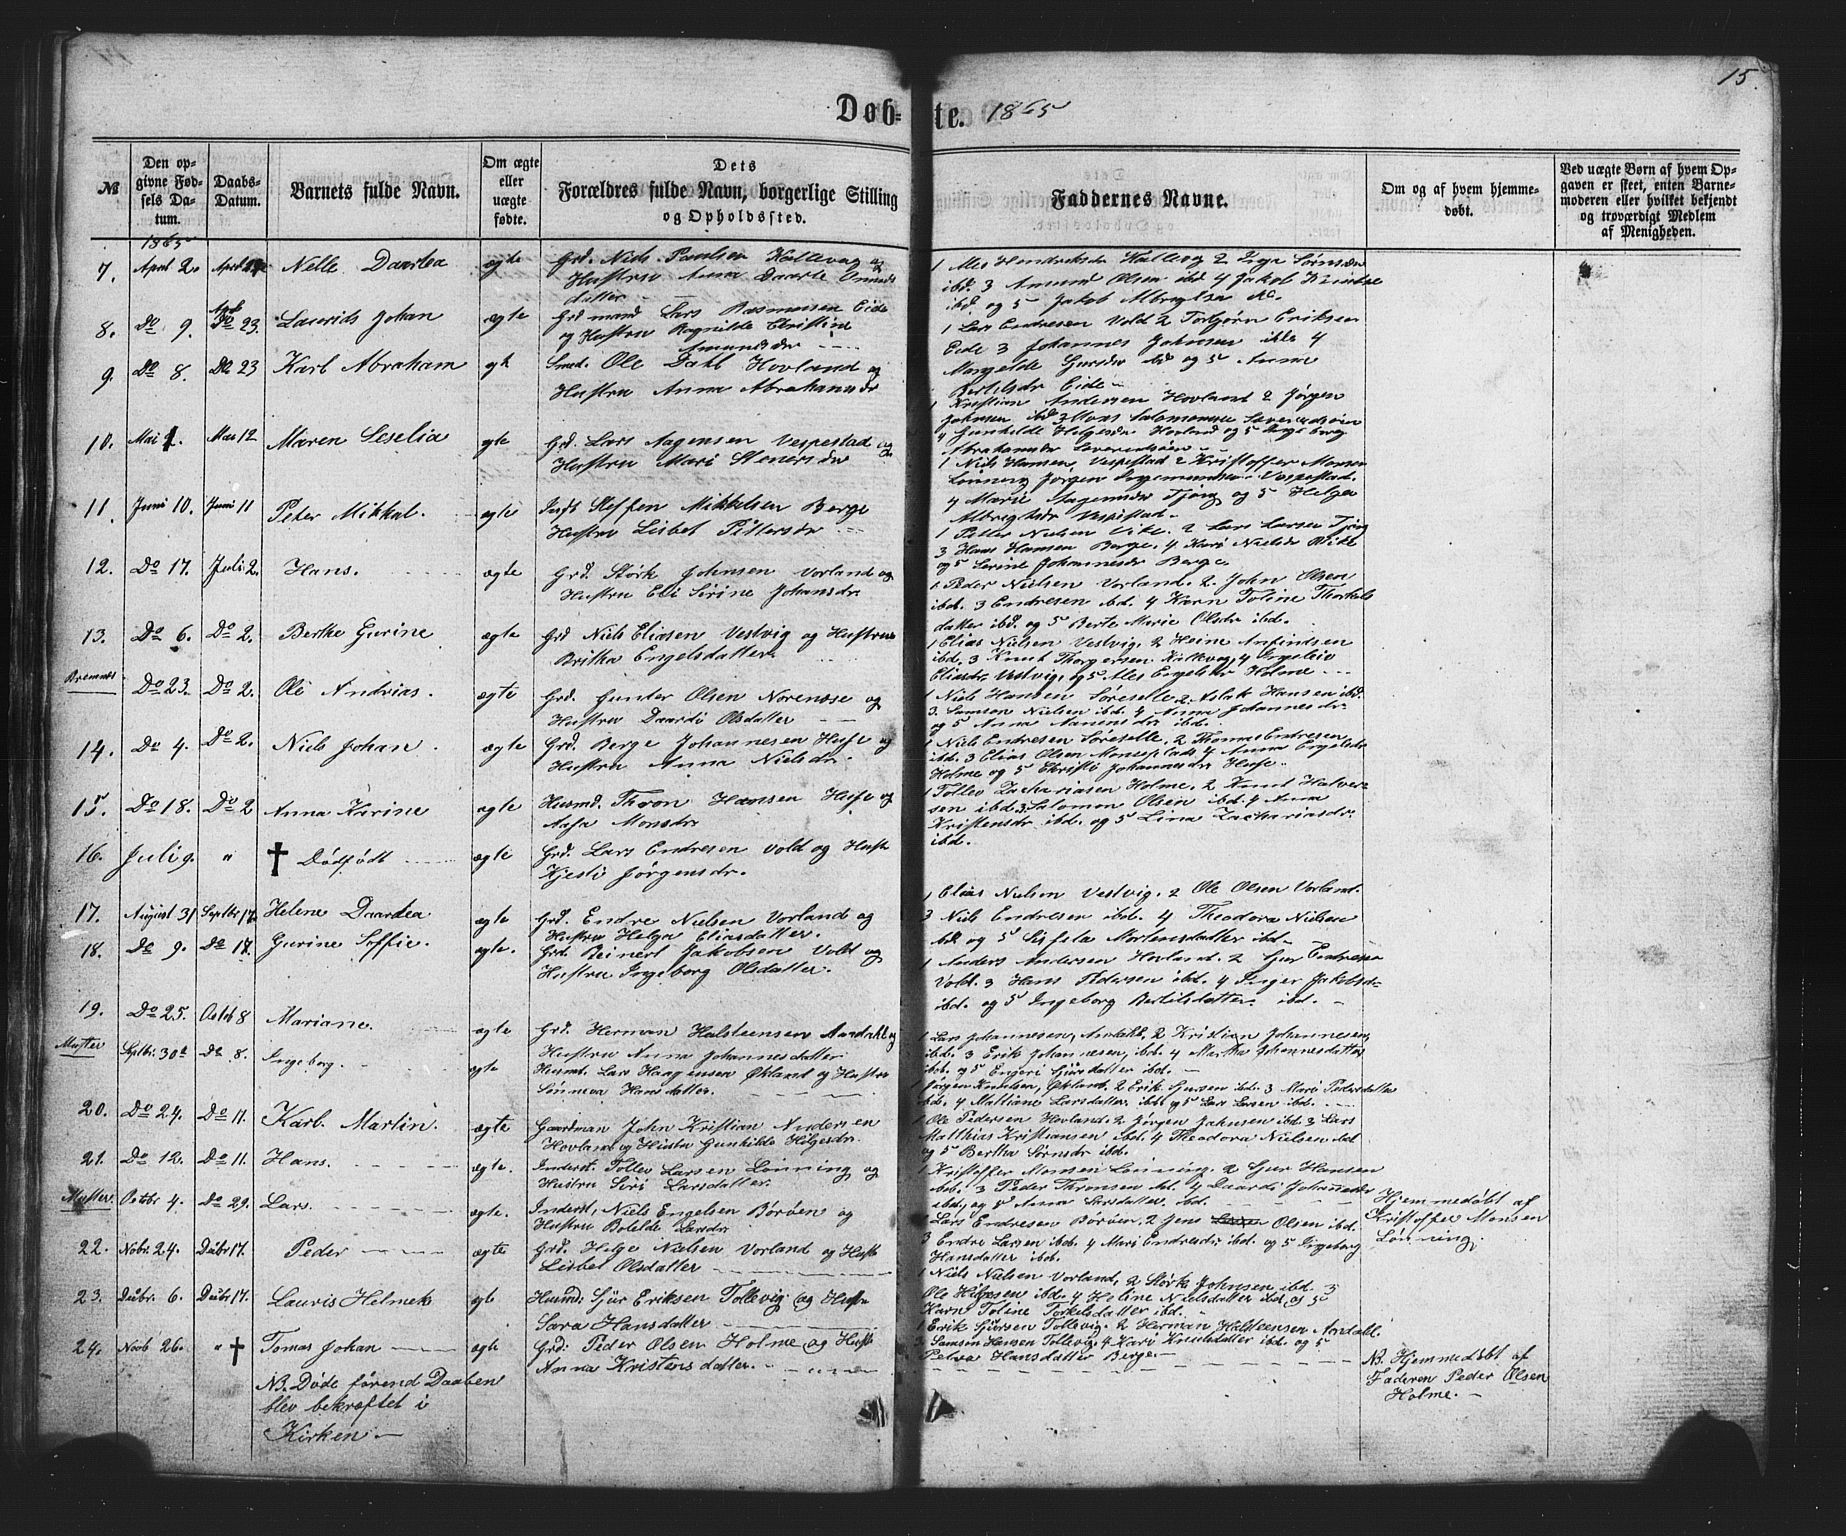 15.
Døb=
te. 1865
№
Den op-
givne Fød-
sels Da-
tum.
Daabs-
Datum.
Barnets fulde Navn.
Om ægte
eller
uægte
fødte.
Dets
Forældres fulde Navn, borgerlige Stilling
og Opholdssted.
Faddernes Navne.
Om og af hvem hjemme-
døbt.
Ved uægte Børn af hvem Op-
gaven er skeet, enten Barne-
moderen eller hvilket bekjendt
og troværdigt Medlem
af Menigheden.
1865
7. April 2. April Nelle Daartea ægte Grd. Niels Paulsen Kallevag og
Hustru Anna Daarte
datter
8. Do 9. Do 23. Laurids Johan ægte Grd mand Lars Rasmusen Eide
og Hustru Ragnilde Christine
Amundsdr
1 Lars Endresen Vold 2 Torbjørn Eriksen
Eide 3 Johannes Johnsen ibd 4
Margelde Gursdr ibd og 5 Anna
Bertelsdr Eide
9. Do 8. Do 23 Karl Abraham Smed. Ole Dahl Hovland og
Hustru Anna Abrahamsdr
1 Kristian Andersen Hovland 2 Jørgen
Johnsen ibd 3 Mons Salomonse
4 Gunhilde Helgesdr Hovland og 5
Abrahamsdr
10. Mai Mai 12 Maren Seselia ægte Grd. Lars Aagensen Vespestad og
Hustru Mari Stenersdr
1 Niels Hansen, Vespestad 2 Kristoffer Monsen
Lønning Jørgen Vespestad.
4 Marie Aagensdr Tjong og 5 Helga
Albrigtsdr Vespestad
11. Juni 10. Juni 11 Peter Mikkal. ægte Indst Steffen Mikkelsen Berge
Hustru Lisbet Pittersdr
1 Petter Nielsen Vike. 2 Lars Larsen Tjong
3 Hans Hansen Berge. 4 Kari Nielsdr Vike
og 5 Serine Johannesdr Berge
12. Do 17. Juli 2. Hans. ægte Grd. Størk Johnsen Vorland og
Hustru Eli Sirine Johansdr
1 Peder Nielsen Vorland. 2 John Olsen
ibd. 3 Endresen ibd. 4 Karn Toline Thorkels
datter ibd. og 5 Berte Marie Olsdr ibd.
13. Do 6. Do 2. Berthe Gurine ægte Grd Niels Eliasen Vestvig og Hustrue
Britha Engelsdatter
1 Elias Nielsen Vestvig, 2 Heine Anfindsen
ibd. 3 Knut Thorgersen
Eliasdr Vestvig, og 5 Holme
Bremnes Do 23. Do 2. Ole Andrias. ægte Grd. Gunder Olsen Norenose og
Hustru Daardi Olsdatter
1 Niels Hansen Søreselle, 2 Aslak Hansen ibd.
3. Samson Nielsen ibd. 4 Anna Johannesdr
og 5 Anna ibd.
14. Do 4. Do 2. Niels Johan. ægte Grd. Berge Johannesen Huse og
Hustru Anna Nielsdr.
1 Niels Endresen Søreselle, 2 Thomas Endresen
ibd. 3 Elias Olsen 4 Anna Engelsdr
Holme og 5 Christi Johannesdr Huse.
15. Do 18. Do 2 Anna Karine ægte Husmd. Thron Hansen Huse og
Aasa Monsdr
1 Tollev Zachariasen Holme, 2 Knut Halver-
sen ibd. 3 Salomon Olsen ibd. 4 Anna
Kristensdr ibd. og 5 Lina Zachariasdr.
ibd.
16. Juli 9. " † Dødfødt ægte Grd. Lars Endresen Vold og Hustr
Kjesti Jørgensdr.
17. August 31 Septbr 17. Helene Daardea ægte Grd. Endre Nielsen Vorland og
Hustru Helga Eliasdatter.
1 Elias Nielsen Vestvig, 2 Ole Olsen Vorland.
3 Niels Endresen ibd. 4 Theodora Nielsen
ibd og 5 Mortensdatter ibd
18. Do 9. Do 17. Gurine Soffie. ægte. Grd. Reinert Jakobsen Vold og
Hustru Ingeborg Olsdatter.
1 Anders Andersen Hovland. 2 Gjør Endresen
Vold. 3 Hans Pedersen ibd. 4 Inger Jakobsd-
ibd. og 5 Ingeborg Bertilsdatter ibd.
19. Do 25. Octob 8 Mariane. ægte Grd. Herman Halsteensen Aandahl og
Hustru Anna Johannesdatter
1 Lars Johannesen, 2 Kristian Johannesen,
ibd. 3 Erik Johannesen, ibd. 4 Martha Johannesdatter
ibd. og 5 Engeri Gjørsdatter ibd.
Moster Septbr. 30d Do 8. Ingeborg. ægte Husmd. Lars Haagensen Økland og Hustru
Sønneva Hansdatter.
1 Jørgen Knudsen, Økland. 2 Erik Gursen ibd. 3 Mari Pedersdatter
ibd. 4 Mattiane Larsdatter ibd. og 5 Lars Larsen ibd.
20. Do 24. Do 11. Karl Martin. ægte Gaardman John Kristian Andersen
Hovland og Hustru Gunhilde Helgesdr.
1 Ole Pedersen Hovland. 2 Jørgen Johnsen ibd. 3 Lars
Matthias Kristiansen ibd. 4 Theodora Nielsen ibd
og 5 Bertha Sørnsdr ibd.
21. Do 12. Do 11. Hans. ægte. Inderst. Tollev Larsen Lønning og
Hustru Siri Larsdatter.
1 Kristoffer Monsen Lønning. 2 Gjur Hansen
ibd. 3 Peder Thronsen ibd. 4 Daardi Johannesdr
ibd., og 5 Anna Larsdatter, ibd.
Hjemmedøbt af
Kristoffer Monsen
Lønning.
Mostere. Octobr 4. Do 29. Lars. ægte. Inderst, Niels Engelsen Børøen og
Hustru Bolelde Larsdr
1 Lars Endresen Børøen, 2 Jens Larsen Olsen ibd.
3 Endre Larsen ibd. 4 Mari Endresdr ibd. og 5 Ingeborg
Hansdatter ibd.
22. Nobr. 24. Debr 17. Peder ægte Grd. Helge Nielsen Vorland og Hustr
Lisbet Olsdatter
1 Niels Nielsen Vorland, 2 Størk Johnsen ibd. 3
Ole Helgesen ibd. 4 Heline Nielsdatter ibd, og 5
Karn Toline Torkelsdatter ibd.
23. Debr. 6. Debr 17. Lauris Helmek Husmd: Gjür Eriksen Tollevig og Hustru
Sara Hansdatter
1 Erik Gjørsen Tollevig. 2 Herman Halsteensen Aandahl.
3. Samson Hansen Tollevig, 4 Kari Knudsdatter ibd. og 5
Petra Hansdatter Berge.
24. Novb 26. " † Tomas Johan Grd: Peder Olsen Holme og Hustr
Anna Kristensdatter.
NB. Døde førend Daaben
blev bekræftet i
Kirken.
NB. Hjemmedøbt af
Faderen Peder Olsen
Holme.